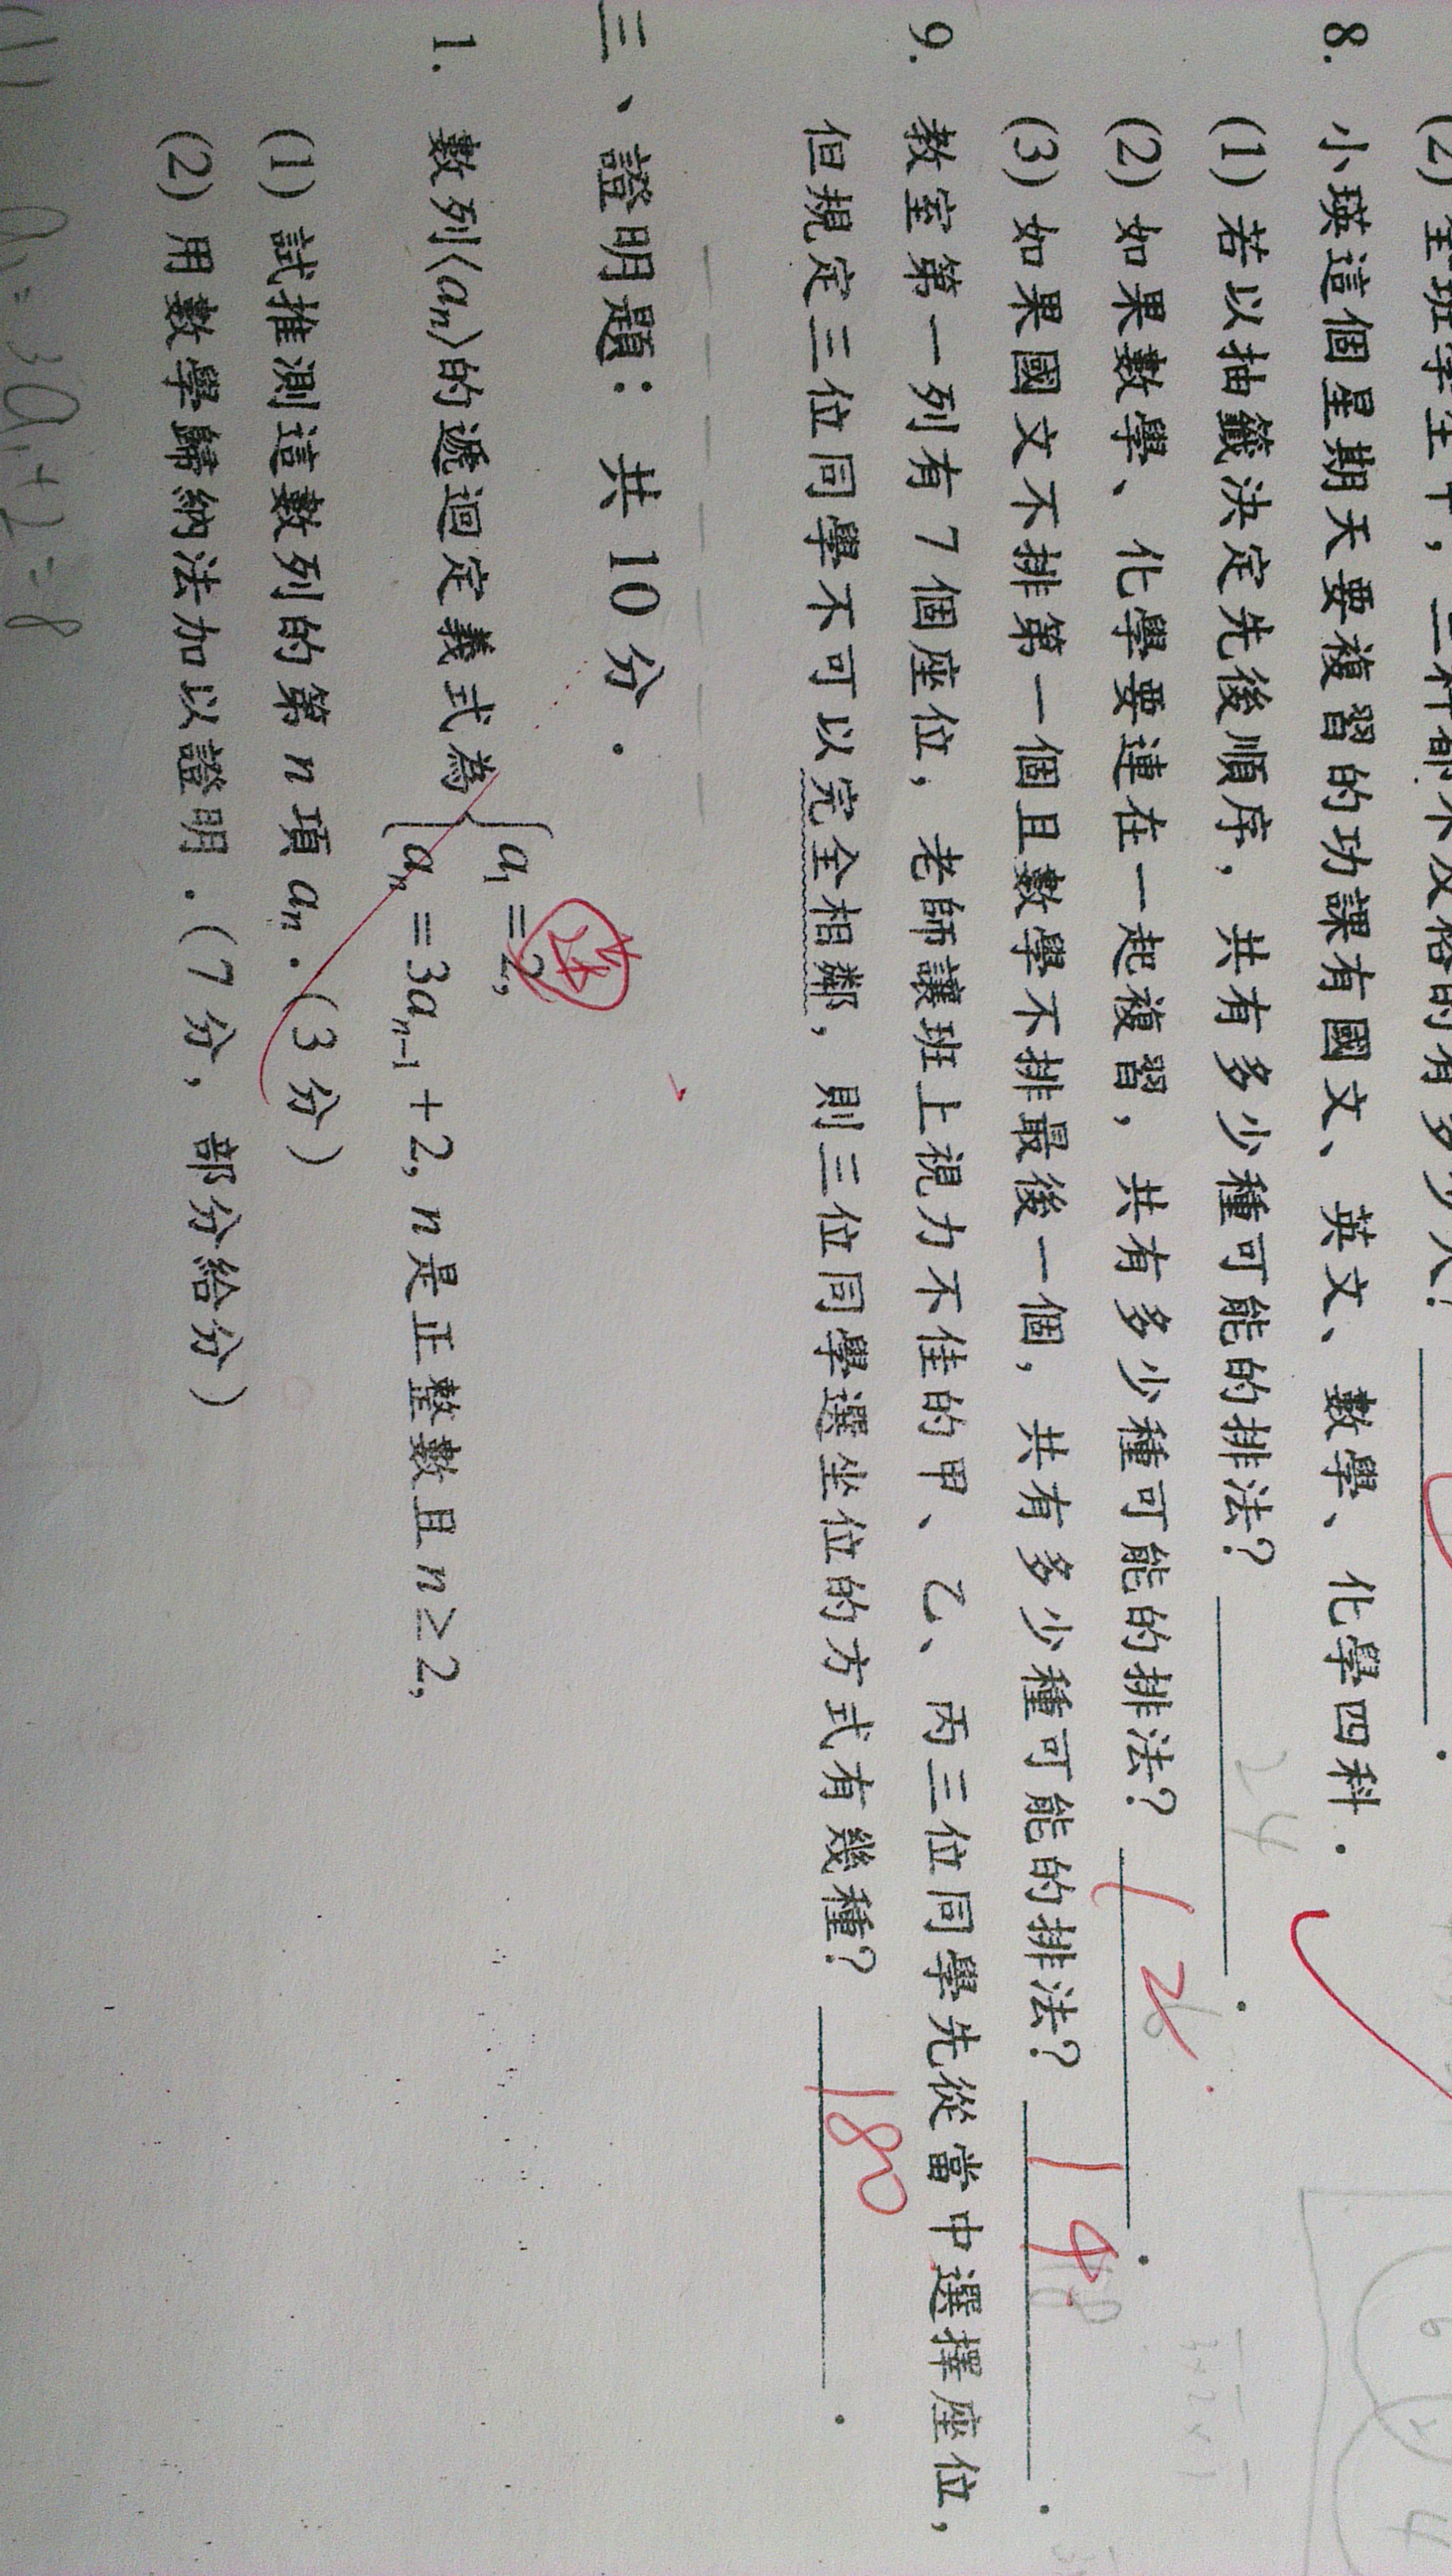 8. 小瑛這個星期天要複習的功課有國文、英文、數學、化學四科.
(1) 若以抽籤決定先後順序, 共有多少種可能的排法? 24 .
(2) 如果數學、化學要連在一起複習, 共有多少種可能的排法? 12 .
(3) 如果國文不排第一個且數學不排最後一個, 共有多少種可能的排法? 14 .
9. 教室第一列有 7 個座位, 老師讓班上視力不佳的甲、乙、丙三位同學先從當中選擇座位,
但規定三位同學不可以完全相鄰, 則三位同學選坐位的方式有幾種? 180 .
三、證明題: 共 10 分.
1. 數列⟨aₙ⟩的遞迴定義式為 { a₁ = 2,
aₙ = 3aₙ₋₁ + 2, n 是正整數且 n ≥ 2,
(1) 試推測這數列的第 n 項 aₙ. (3 分)
(2) 用數學歸納法加以證明. (7 分, 部分給分)
(1)
a₂ = 3a₁ + 2 = 8